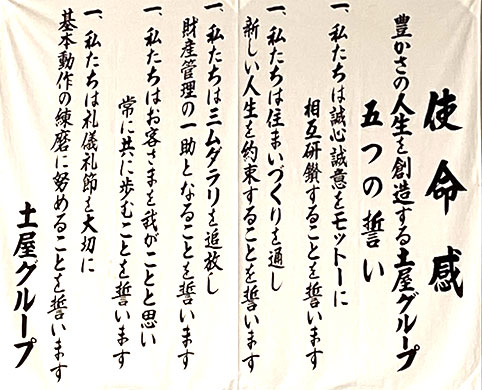 使命感
豊かさの人生を創造する土屋グループ
五つの誓い
一、私たちは誠心誠意をモットーに
相互研鑽することを誓います
一、私たちは住まいづくりを通し
新しい人生を約束することを誓います
一、私たちはミニムダラリを追放し
財産管理の一助となることを誓います
一、私たちはお客さまを我がことと思い
常に共に歩むことを誓います
一、私たちは礼儀礼節を大切に
基本動作の練磨に努めることを誓います
土屋グループ